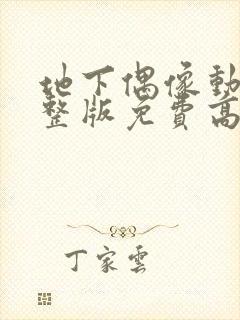 地下偶像動
整版免費高
丁家雲